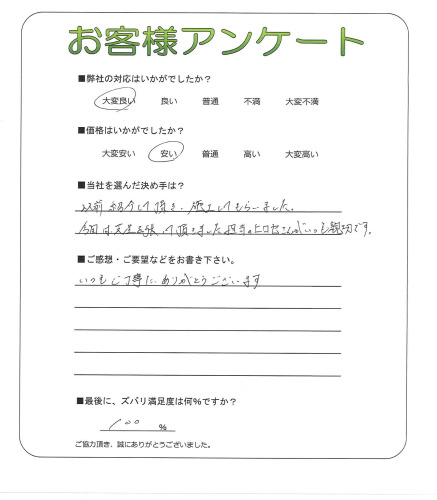 お客様アンケート
■弊社の対応はいかがでしたか？
大変良い 良い 普通 不満 大変不満
■価格はいかがでしたか？
大変安い 安い 普通 高い 大変高い
■当社を選んだ決め手は？
以前紹介して頂き、施工してもらいました。
今回は天井を張って頂きました担当のヒロセさんがいつも親切です。
■ご感想・ご要望などをお書き下さい。
いつもご丁寧にありがとうございます
■最後に、ズバリ満足度は何％ですか？
100 ％
ご協力頂き、誠にありがとうございました。